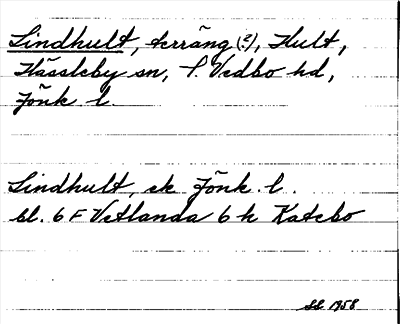 Lindhult, terräng (?), Hult,
Hässleby sn, S. Vedbo hd,
Jönk. l.
Lindhult, ek Jönk. l.
bl. 6 F Vetlanda 6 h Katebo
1958